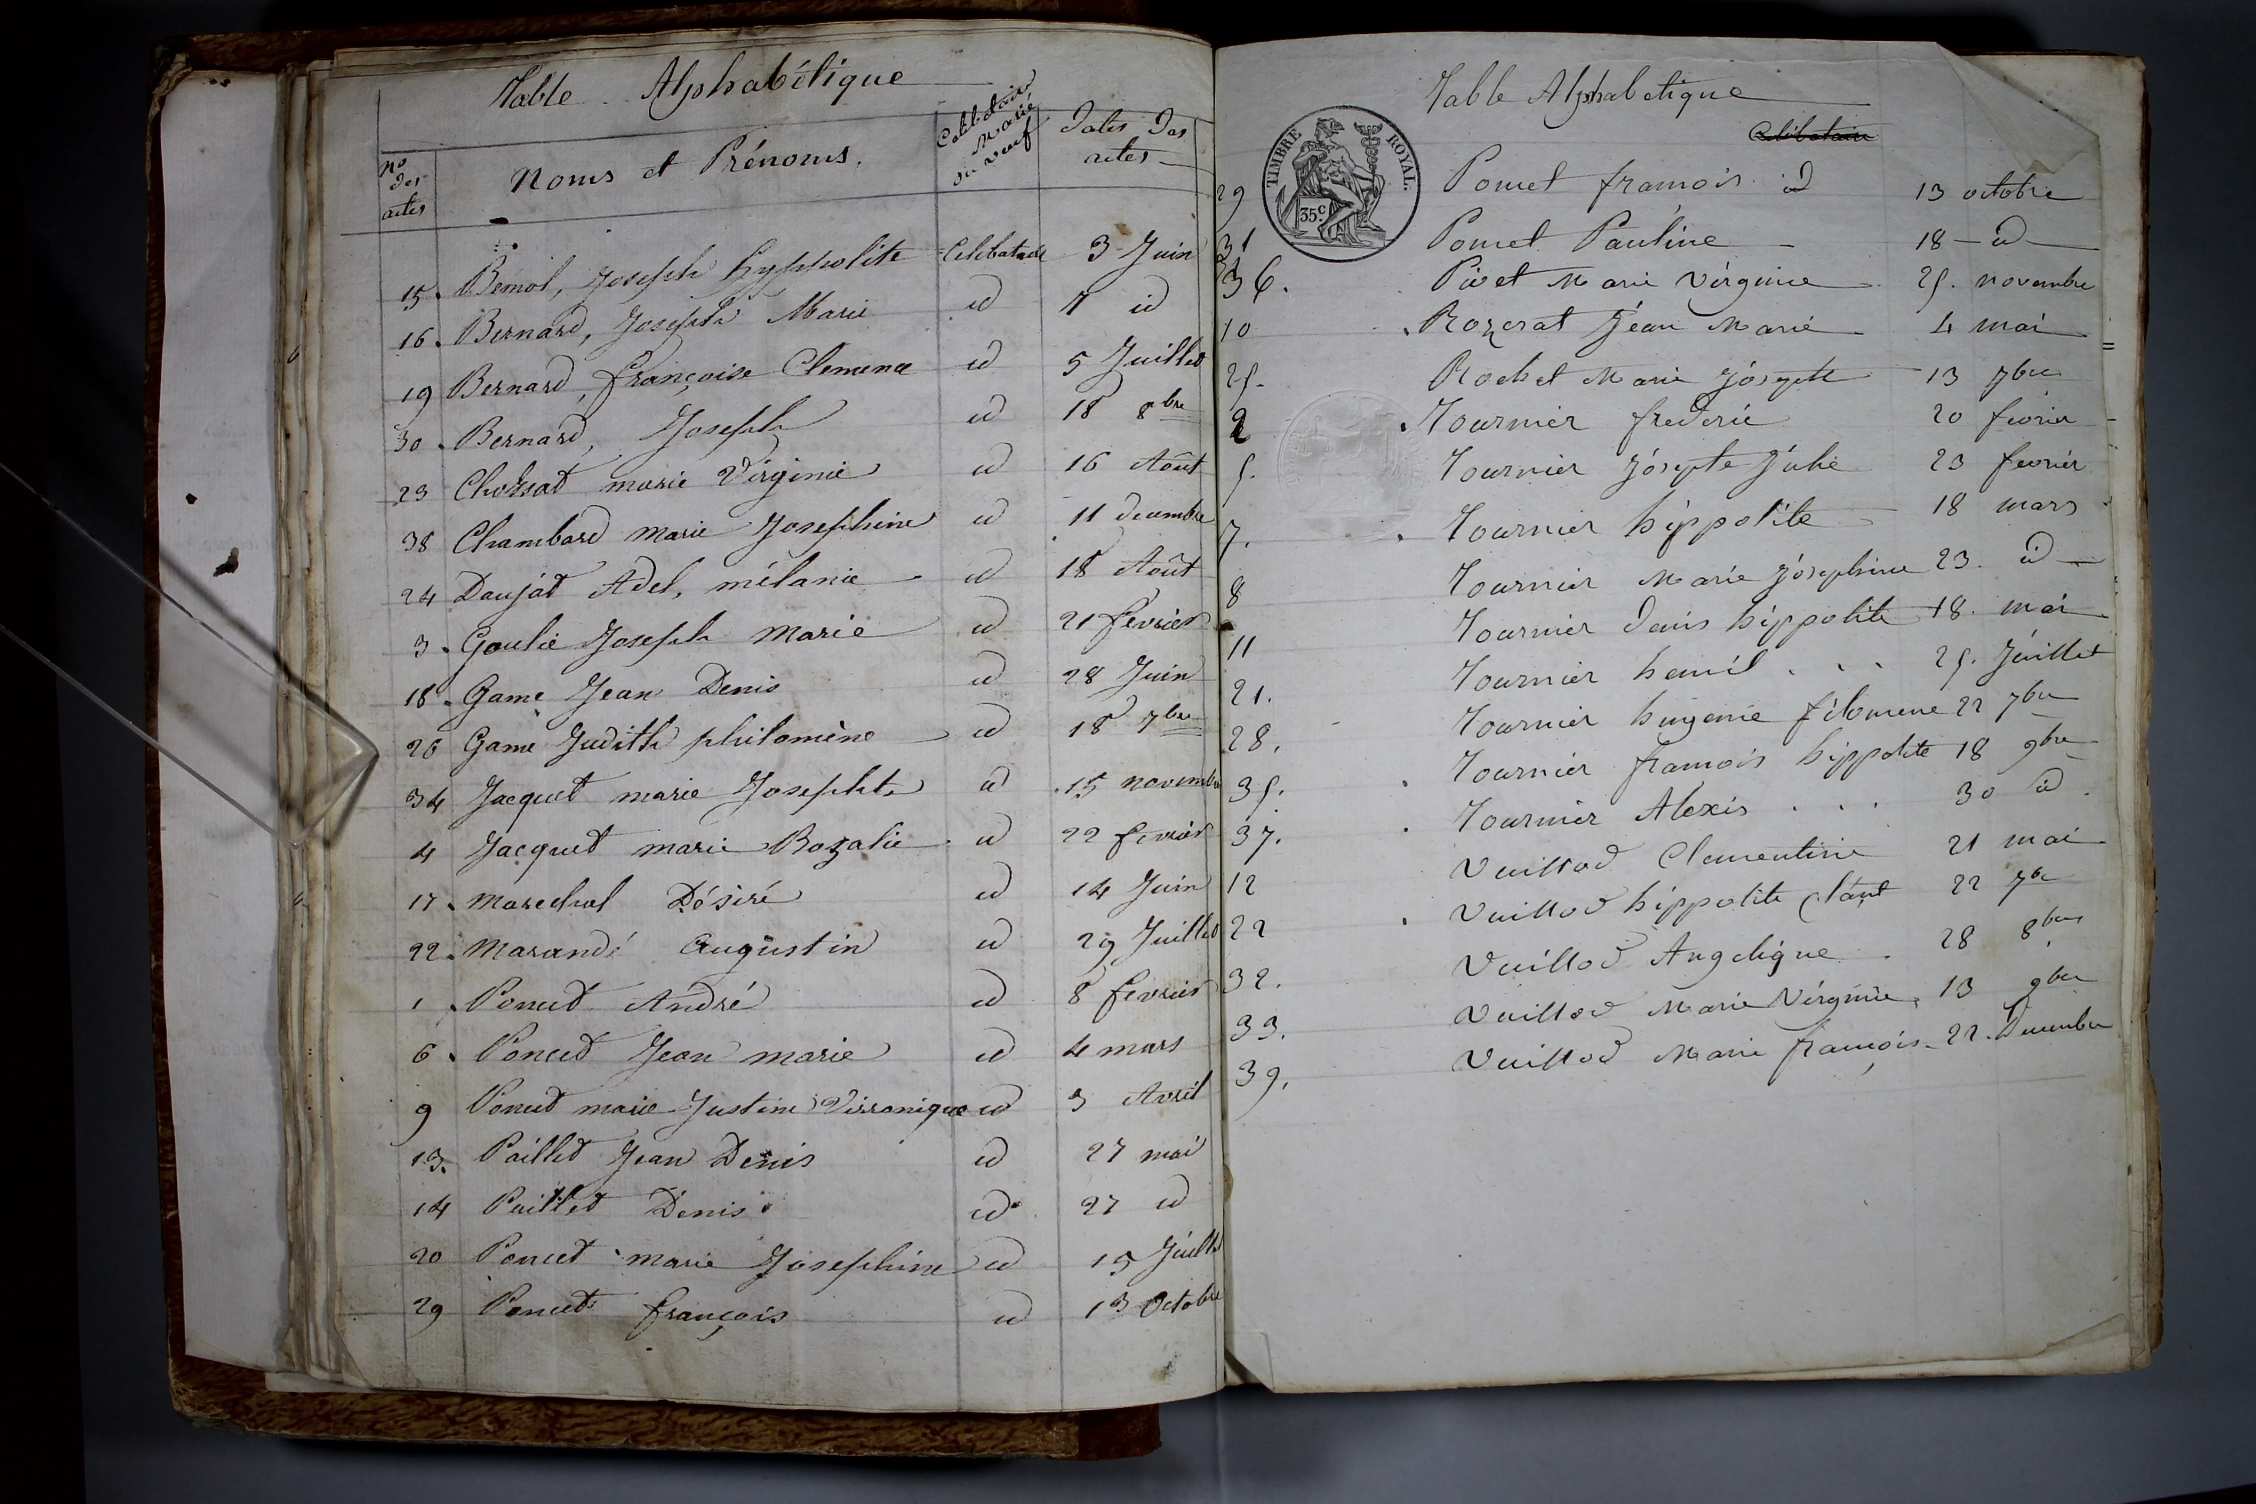 Table Alphabétique
No des actes
Noms et Prénoms.
Celibataire Marié ou veuf
Dates des actes
15. Bémol, Joseph hyppolite Celibataire 3 Juin
16. Bernard, Joseph Marie id 7 id
19 Bernard, françoise Clemence id 5 Juillet
30. Bernard, Joseph id 18 8bre
23 Chozsat marie Virginie id 16 Août
38 Chambard marie Josephine id 11 decembre
24 Daujat Adel, mélanie id 18 Août
3. Goulie Joseph Marie id 21 fevrier
18. Game Jean Denis id 28 Juin
26 Game Judith philomène id 18 7bre
34 Jacquet marie Josephte id 15 novembre
4 Jacquet marie Rozalie id 22 fevrier
17. Marechal Désiré id 14 Juin
22. Marandé Augustin id 29 Juillet
1. Poncet André id 8 fevrier
6. Poncet Jean marie id 4 mars
9 Poncet marie Justine Virronique id 3 Avril
13. Paillet Jean Denis id 27 mai
14 Paillet Denis id 27 id
20 Poncet marie Josephine id 15 Juillet
29 Poncet françois id 13 Octobre
Table Alphabetique
Celibataire
TIMBRE ROYAL.
35c
29 Poncet francois id 13 octobre
31 Poncet Pauline 18 id
36. Pivet Marie Virginie 25. novembre
10 Rozerat Jean Marie 4 mai
25. Rochet Marie Josepte 13 7bre
2 Tournier frederic 20 fevrier
5. Tournier Josepte Julie 23 fevrier
7. Tournier hippolite 18 mars
8 Tournier Marie Josephine 23. id
11 Tournier Denis hippolite 18. mai
21. Tournier hemil . . . 25. Juillet
28. Tournier hugenie filomene 22 7bre
35. Tournier francois hippolite 18 9bre
37. Tournier Alexis . . . 30 id.
12 Vuillod Clementine 21 mai
22 Vuillod hippolite 22 7bre
32. Vuillod Angelique. 28 8bre
33. Vuillod Marie Virginie 13 9bre
39. Vuillod Marie françois 22. Decembre